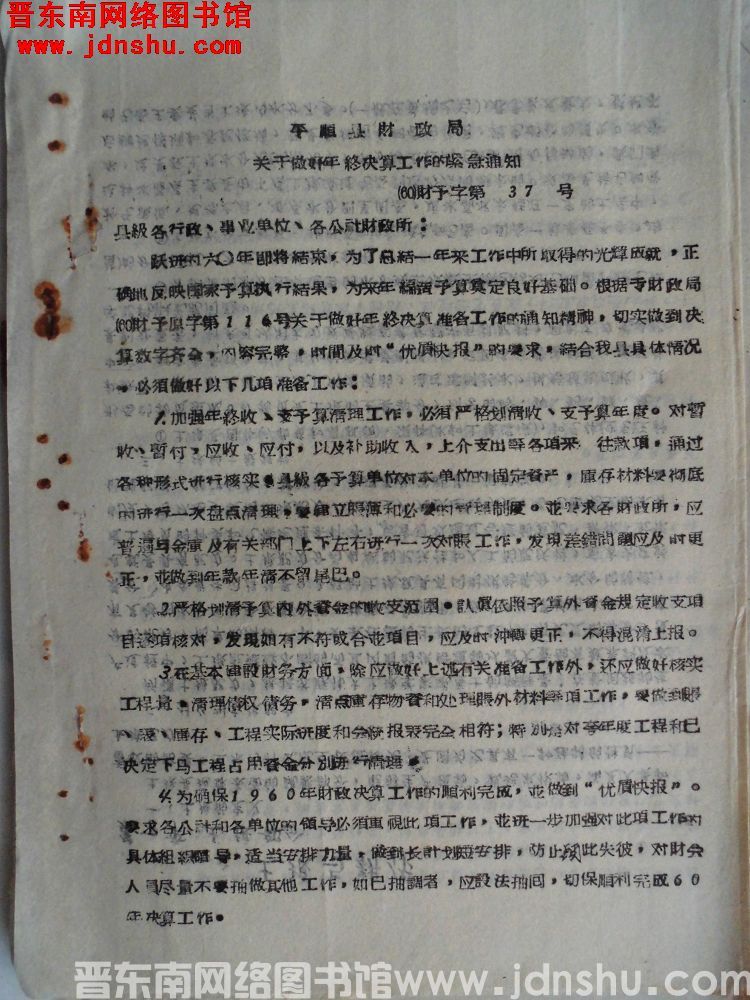 晋东南网络图书馆
www.jdnshu.com
平順县財政局
关于做好年終决算工作的紧急通知
(60)財予字第 37 号
县級各行政、事业单位、各公社財政所：
跃进的六〇年即将結束，为了总結一年来工作中所取得的光輝成就，正
确地反映国家予算执行結果，为来年編造予算奠定良好基础。根据专財政局
(60)財予原字第116号关于做好年終决算准备工作的通知精神，切实做到决
算数字齐全，内容完整，时間及时“优质快报”的要求，結合我县具体情况
，必須做好以下几項准备工作：
1.加强年終收、支予算清理工作，必須严格划清收、支予算年度。对暫
收、暫付、应收、应付，以及补助收入，上介支出等各項来 往款項，通过
各种形式进行核实。县級各予算单位对本单位的固定資产，庫存材料要彻底
的进行一次盘点清理，要建立賬薄和必要的管理制度。並要求各財政所，应
普遍与金庫及有关部门上下左右进行一次对賬工作，发現差錯問題应及时更
正，並做到年款年清不留尾巴。
2.严格划清予算內外資金的收支范圍。認眞依照予算外資金規定收支項
目逐項核对，发現如有不符或合並項目，应及时冲轉更正，不得混淆上报。
3.在基本建設財务方面，除应做好上述有关准备工作外，还应做好核实
工程量，清理債权債务，清点庫存物資和处理賬外材料等項工作，要做到賬
、庫存、工程实际进度和会統报表完全相符；特別是对等年度工程和已
决定下马工程占用資金分別进行清理。
4.为确保1960年財政决算工作的順利完成，並做到“优质快报”。
要求各公社和各单位的領导必須重視此項工作，並进一步加强对此項工作的
具体組織領导，适当安排力量，做到长計划短安排，防止顾此失彼，对財会
人員尽量不要抽做其他工作，如已抽調者，应設法抽回，切保順利完成60
年决算工作。
晋东南网络图书馆www.jdnshu.com